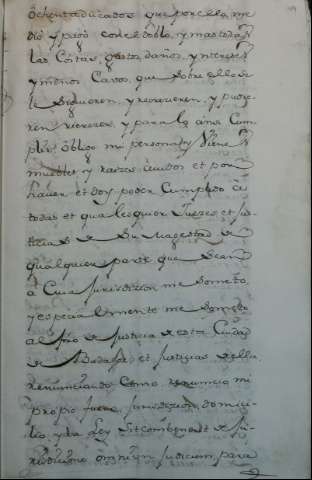 ochenta ducados que por ella me
dio y pago con el doblo, y mas todas
las costas, gastos, daños, yntereses
y menos cavos, que sobre ello se
le siguieren, y recrecieren, y pudie
ren recrecer, y para lo ansi cum
plir obligo mi persona, y vienes
muebles y raizes avidos et por
haver et doy poder cumplido a
todas et qualesquier Juezes et jus
ticias de Su Magestad de
qualquier parte que sean
a cuia jurisdizion me someto,
y especialmente me someto
al fuero de justicia de esta Ciudad
de Badajoz et justicias de ella
renunciando como renuncio mi
propio fuero, jurisdizion domici
lio y la Ley Sit combenerit de ju
risdicione omniun judicun, para